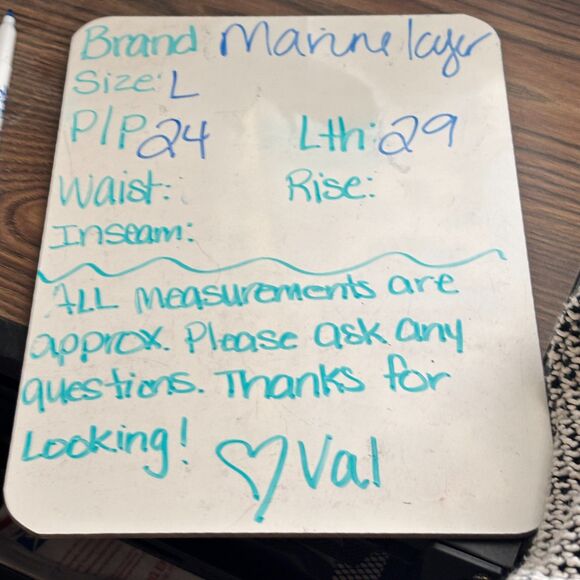 Brand Marine layer
Size: L
P/P 24 Lth: 29
Waist: Rise:
Inseam:
ALL measurements are
approx. Please ask any
questions. Thanks for
Looking! ♡ Val